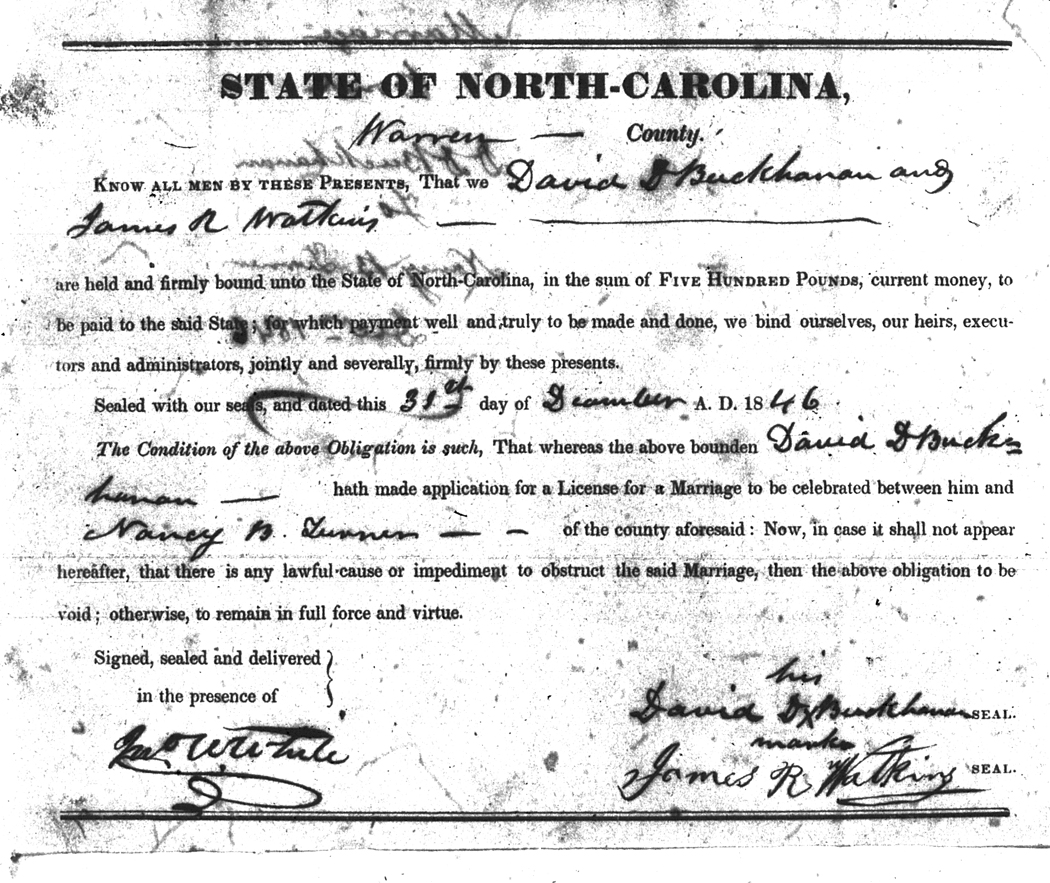 STATE OF NORTH-CAROLINA,
Warren — County.
KNOW ALL MEN BY THESE PRESENTS, That we David D Buckhanan and
James R Watkins — —
are held and firmly bound unto the State of North-Carolina, in the sum of FIVE HUNDRED POUNDS, current money, to
be paid to the said State; for which payment well and truly to be made and done, we bind ourselves, our heirs, execu-
tors and administrators, jointly and severally, firmly by these presents.
Sealed with our seals, and dated this 31st day of December A. D. 1846
The Condition of the above Obligation is such, That whereas the above bounden David D Buck=
hanan — hath made application for a License for a Marriage to be celebrated between him and
Nancy B. Turner — — of the county aforesaid: Now, in case it shall not appear
hereafter, that there is any lawful cause or impediment to obstruct the said Marriage, then the above obligation to be
void; otherwise, to remain in full force and virtue.
Signed, sealed and delivered }
in the presence of
his
David D X Buckhanan SEAL.
mark
Jno W White
James R Watkins SEAL.